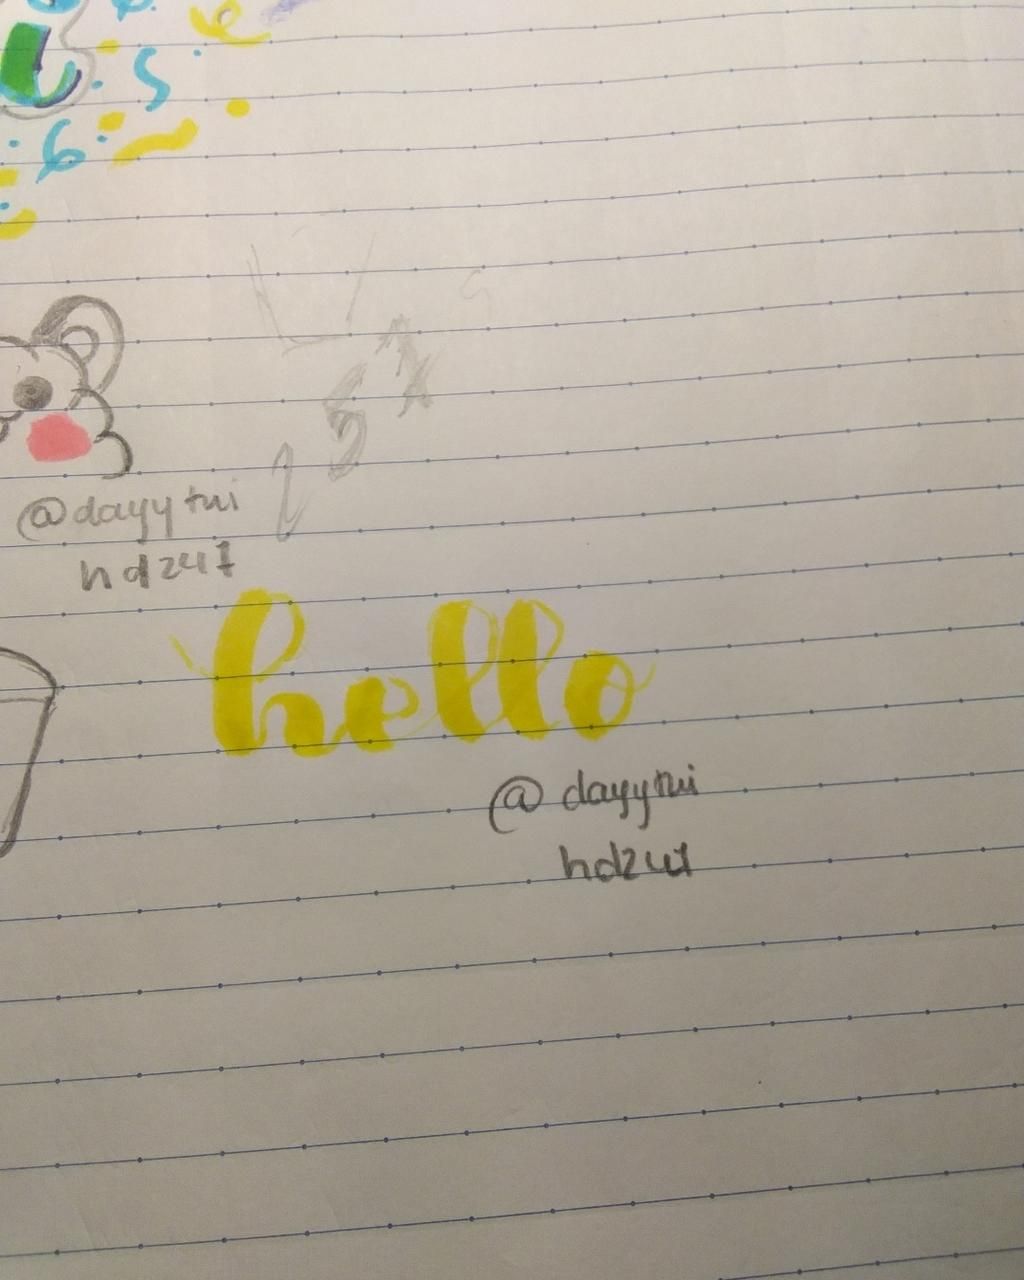 @dayytui
hd247
hello
@dayytui
hd247